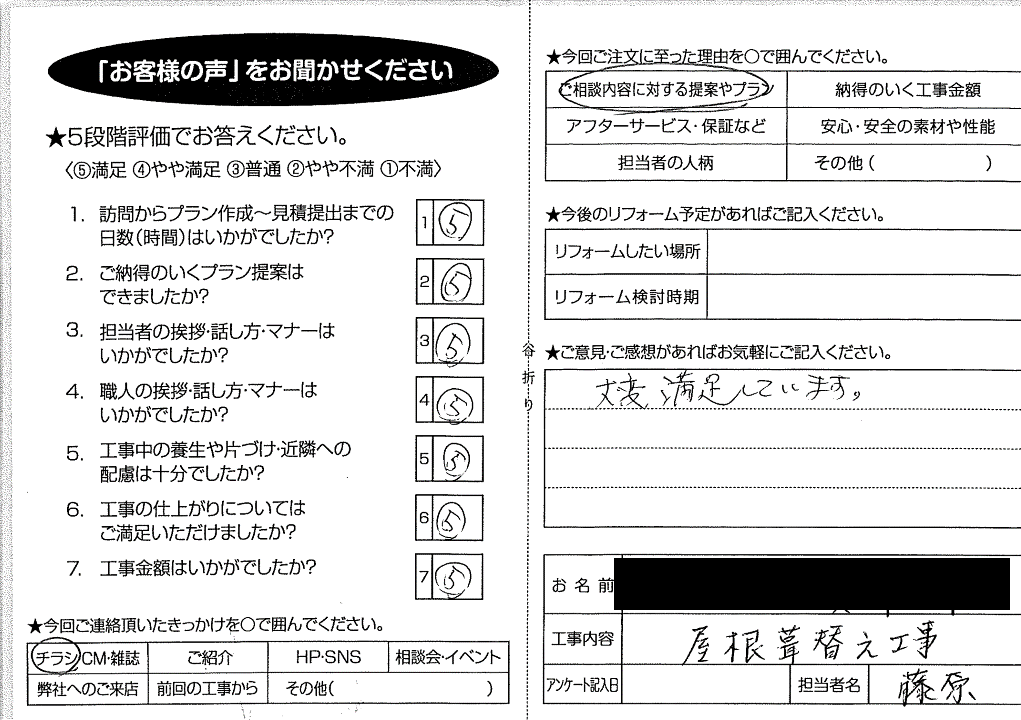 「お客様の声」をお聞かせください
★5段階評価でお答えください。
〈⑤満足 ④やや満足 ③普通 ②やや不満 ①不満〉
1. 訪問からプラン作成～見積提出までの
日数(時間)はいかがでしたか?
1 ⑤
2. ご納得のいくプラン提案は
できましたか?
2 ⑤
3. 担当者の挨拶・話し方・マナーは
いかがでしたか?
3 ⑤
4. 職人の挨拶・話し方・マナーは
いかがでしたか?
4 ⑤
5. 工事中の養生や片づけ・近隣への
配慮は十分でしたか?
5 ⑤
6. 工事の仕上がりについては
ご満足いただけましたか?
6 ⑤
7. 工事金額はいかがでしたか?
7 ⑤
★今回ご連絡頂いたきっかけを○で囲んでください。
チラシ/CM・雑誌 ご紹介 HP・SNS 相談会・イベント
弊社へのご来店 前回の工事から その他( )
谷折り
★今回ご注文に至った理由を○で囲んでください。
ご相談内容に対する提案やプラン 納得のいく工事金額
アフターサービス・保証など 安心・安全の素材や性能
担当者の人柄 その他( )
★今後のリフォーム予定があればご記入ください。
リフォームしたい場所
リフォーム検討時期
★ご意見・ご感想があればお気軽にご記入ください。
大変満足しています。
お名前
工事内容 屋根葺替え工事
アンケート記入日 担当者名 藤原